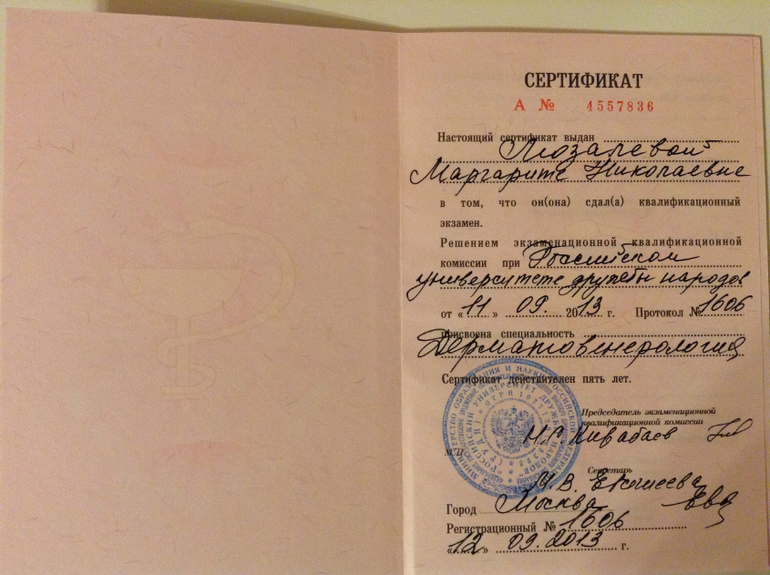 СЕРТИФИКАТ
А № 4557836
Настоящий сертификат выдан
Люзалевой
Маргарите Николаевне
в том, что он(она) сдал(а) квалификационный
экзамен.
Решением экзаменационной квалификационной
комиссии при Российском
университете дружбы народов
от «11» 09. 2013 г. Протокол № 1606
присвоена специальность
Дерматовенерология
Сертификат действителен пять лет.
Председатель экзаменационной
квалификационной комиссии
Н.С. Кирабаев
М.П.
Секретарь
М.В.
Город Москва
Регистрационный № 1606
«12» 09.2013 г.